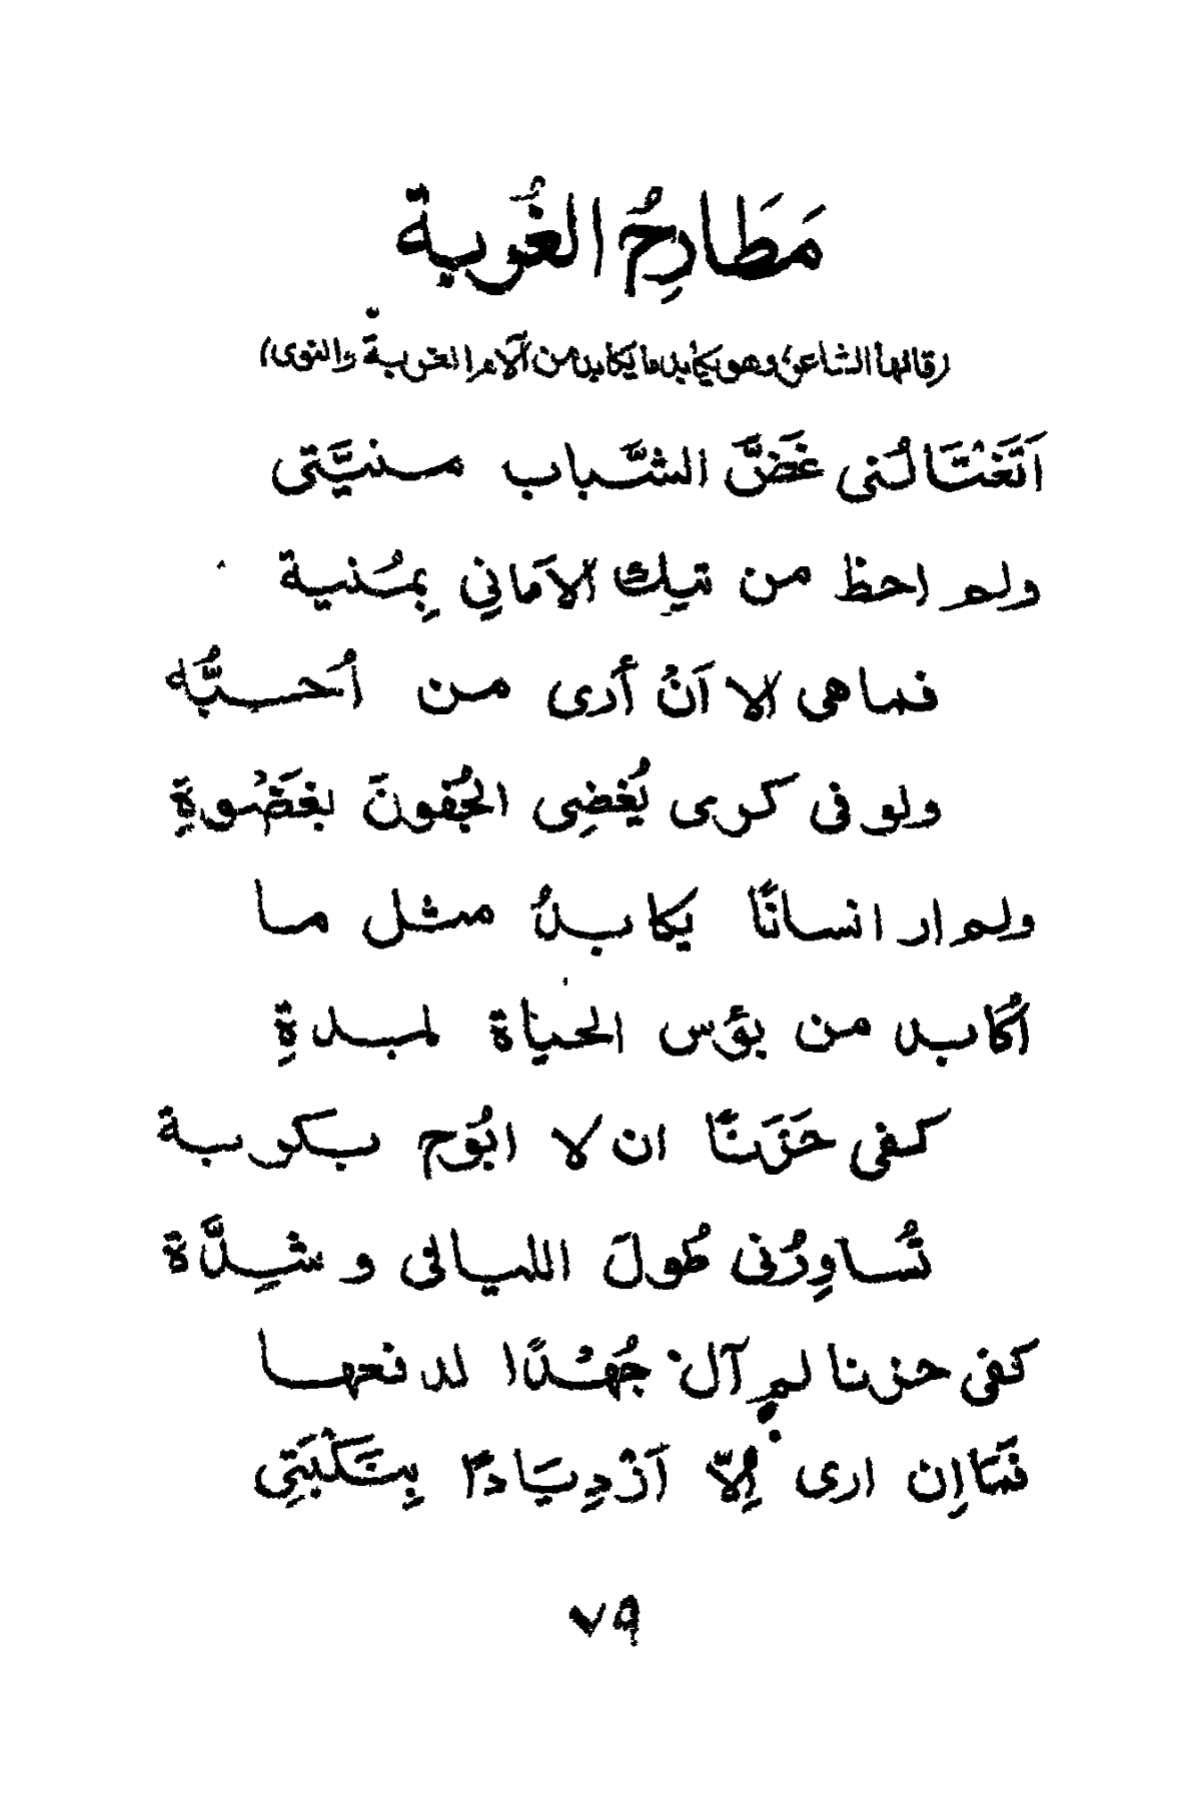 مَطَارِحُ الغُربة
(قالها الشاعر وهو يكابد ما يكابد من آلام الغربة والنوى)
اَتَغْتَالُنى غَضَّ الشَّباب منيَّتى
ولم احظ من تيك الاَماني بِمُنية
فما هى الا اَنْ أرى من اُحبُّه
ولو فى كرى يُغضِى الجُفونَ بغَضْوةِ
ولم ار انسانًا يكابدُ مثل ما
اُكابد من بؤس الحياة لمبدةِ
كفى حَزَنًا ان لا ابُوح بكربة
تُساوِرُنى طُولَ الليالى و شِدَّة
كفى حزنا لم آل جُهْدًا لدفعها
فما اِن ارى اِلاّ اَزْدِيَادًا بِنَكْبَتِى
٧٩